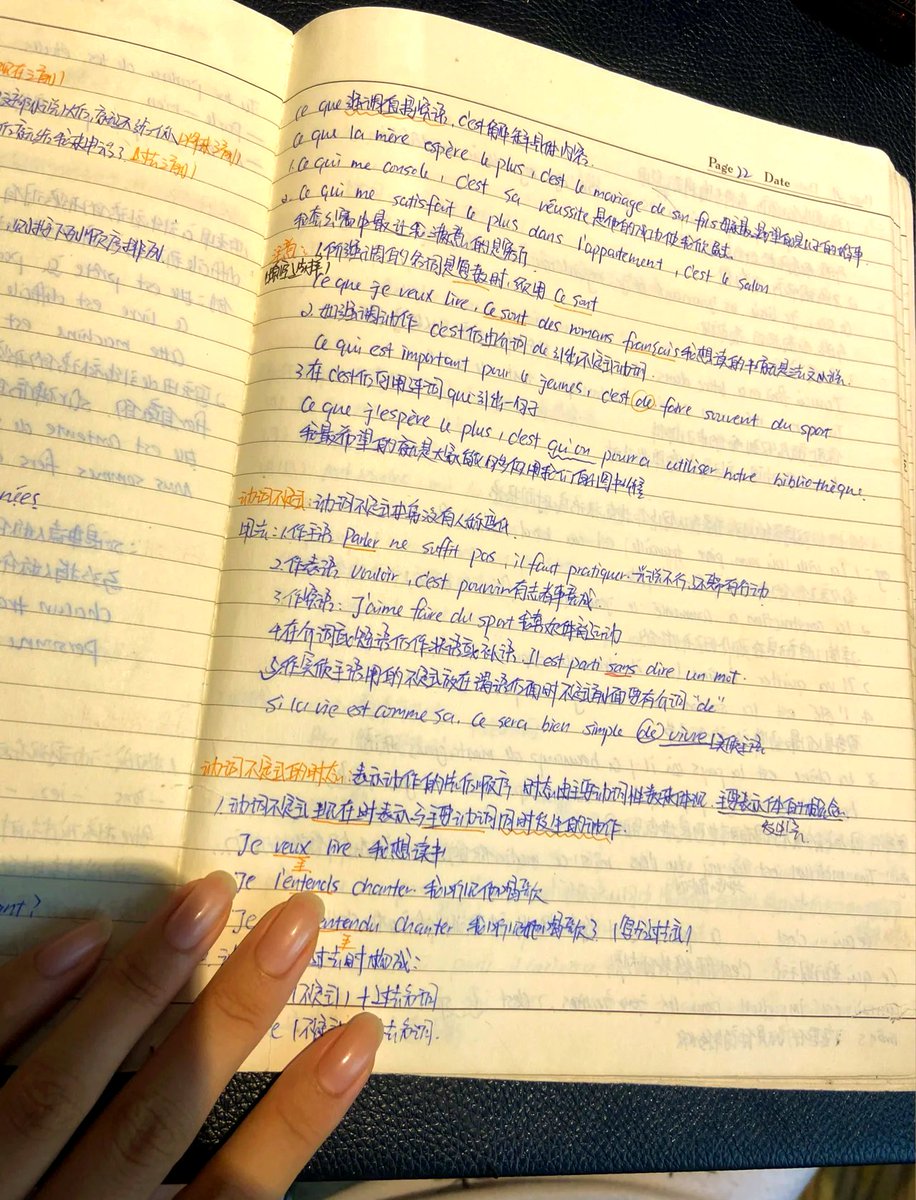 Page 12 Date
ce que 强调直接宾语, c'est 解释具体内容.
ce que la mère espère le plus, c'est le mariage de son fils 母亲最希望的是儿子的婚事.
1. Ce qui me console, c'est sa réussite 是他的成功使我欣慰.
2. Ce qui me satisfait le plus dans l'appartement, c'est le salon
我在公寓中最让我满意的是客厅.
注意: 1. 所强调的名词是复数时, 须用 ce sont
Ce que je veux lire, ce sont des romans français 我想读的书就是法文小说.
2. 如强调动作 c'est 后由介词 de 引出不定式动词.
Ce qui est important pour le jeunes, c'est de faire souvent du sport
3. 在 c'est 后用连词 qui 引出一句子
Ce que j'espère le plus, c'est qu'on pourra utiliser notre bibliothèque.
我最希望的就是大家能够使用我们的图书馆
动词不定式: 动词不定式本身没有人称变化.
用法: 1. 作主语 Parler ne suffit pas, il faut pratiquer. 光说不行, 还需有行动
2. 作表语 vouloir, c'est pouvoir 有志者事竟成.
3. 作宾语: J'aime faire du sport 我喜欢体育运动
4. 在介词或短语后作状语或补语. Il est parti sans dire un mot.
5. 作实质主语用的不定式放在谓语后面时不定式前面要有介词 "de"
Si la vie est comme sa, ce sera bien simple (de) vivre 实质主语
动词不定式的时态: 表示动作的先后顺序 时态由主要动词性 体现, 主要表示体的概念.
1. 动词不定式现在时表示与主要动词同时发生的动作.
Je veux lire. 我想读书
主
Je l'entends chanter 我听见他唱歌
Je entendu chanter 我听见他唱歌了 (复合过去)
主
过去时构成:
(不定式) + 过去分词
过去分词.
nées
ant?
则按下列顺序排列